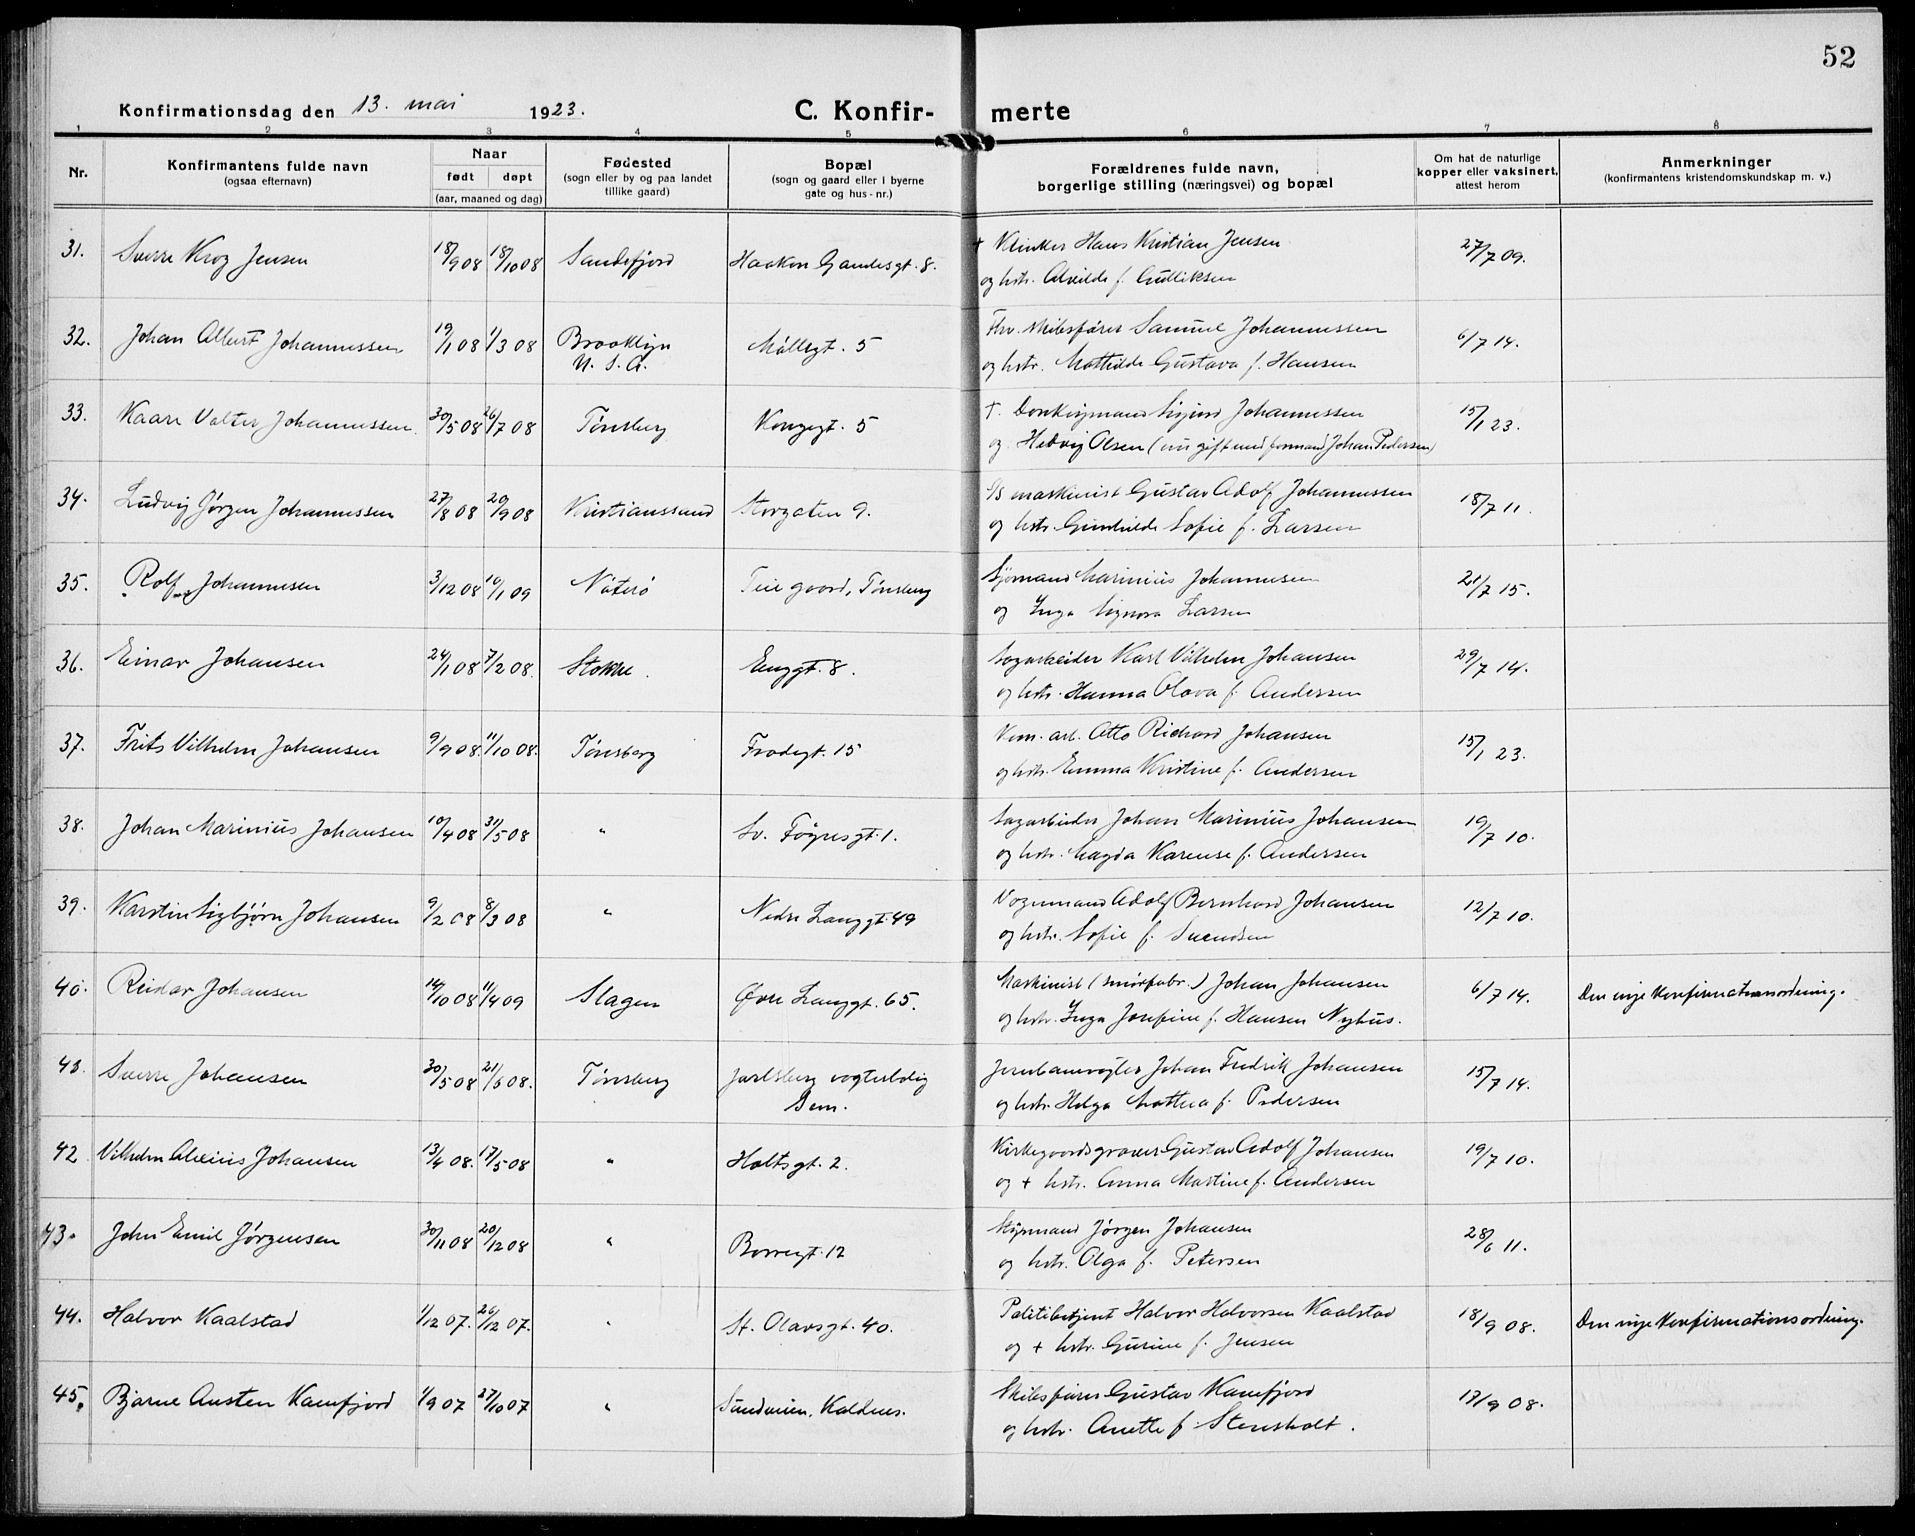 52
Konfirmationsdag den 13. mai 1923.
C. Konfir- merte
1 2 3 4 5 6 7 8
Nr.
Konfirmantens fulde navn
(ogsaa efternavn)
Naar
født døpt
(aar, maaned og dag)
Fødested
(sogn eller by og paa landet
tillike gaard)
Bopæl
(sogn og gaard eller i byerne
gate og hus-nr.)
Forældrenes fulde navn,
borgerlige stilling (næringsvei) og bopæl
Om hat de naturlige
kopper eller vaksinert,
attest herom
Anmerkninger
(konfirmantens kristendomskundskap m. v.)
31. Sverre Krog Jensen 18/9 08 18/10 08 Sandefjord Haakon Gamlesgt. 8. + Klinker Hans Kristian Jensen 27/7 09.
og hstr. Alvilde f. Gulliksen
32. Johan Albert Johannessen 19/1 08 1/3 08 Brooklyn Møllegt. 5 Fhv. skibsfører Samuel Johannessen 6/7 14.
U. S. A. og hstr. Mathilde Gustava f. Hansen
33. Kaare Valter Johannessen 30/5 08 26/7 08 Tønsberg Kongegt. 5 +. Donkeymand Sigurd Johannessen 15/1 23.
og Hedvig Olsen (nu gift med formand Johan Pedersen)
34. Ludvig Jørgen Johannessen 27/8 08 20/9 08 Kristianssund Storgaten 9. S/S maskinist Gustav Adolf Johannessen 18/7 11.
og hstr. Gunhilde Sofie f. Larsen
35. Rolf Johannesen 3/12 08 10/1 09 Nøterø Teie gaard, Tønsberg Sjømand Marinius Johannesen 21/7 15.
og Inga Signora Larsen
36. Einar Johansen 24/1 08 7/2 08. Stokke. Enggt. 8. Sagarbeider Karl Vilhelm Johansen 29/7 14.
og hstr. Hanna Olava f. Andersen
37. Frits Vilhelm Johansen 9/9 08. 11/10 08. Tønsberg Frodegt. 15 Kom. arb. Otto Richard Johansen 15/1 23.
og hstr. Emma Kristine f. Andersen
38. Johan Marinius Johansen 10/4 08 31/5 08 " Sv. Føynsgt. 1. Sagarbeider Johan Marinius Johansen 19/7 10.
og hstr. Magda Karense f. Andersen
39. Karstin Sigbjørn Johansen 9/2 08 8/3 08 " Nedre Langgt. 49 Vognmand Adolf Bernhard Johansen 12/7 10.
og hstr. Sofie f. Svendsen
40. Reidar Johansen 14/10 08 11/4 09 Slagen Øvre Langgt. 65. Maskinist (smørfabr.) Johan Johansen 6/7 14. Den nye Konfirmationsordning.
og hstr. Inga Josefine f. Hansen Nyhus.
Sverre Johansen 30/5 08 21/6 08. Tønsberg Jarlsberg vogterbolig Jernbanevogter Johan Fredrik Johansen 15/7 14.
Sem. og hstr. Helga Mathea f. Pedersen
42 Vilhelm Alexius Johansen 13/4 08. 17/5 08 " Holtsgt. 2. Kirkegaardsgraver Gustav Adolf Johansen 19/7 10.
og + hstr. Anna Martine f. Andersen
43. John Emil Jørgensen 30/11 08 20/12 08 " Borregt. 12 Skipmand Jørgen Johansen 28/6 11.
og hstr. Olga f. Petersen
44. Halvor Kaalstad 1/12 07. 26/12 07. " St. Olavsgt. 40. Politibetjent Halvor Halvorsen Kaalstad 18/9 08. Den nye Konfirmationsordning.
og + hstr. Gurine f. Jensen
45. Bjarne Austen Kamfjord 1/9 07 27/10 07 " Kaldnes. Skibsfører Gustav Kamfjord 17/9 08.
og hstr. Anette f Stensholt.